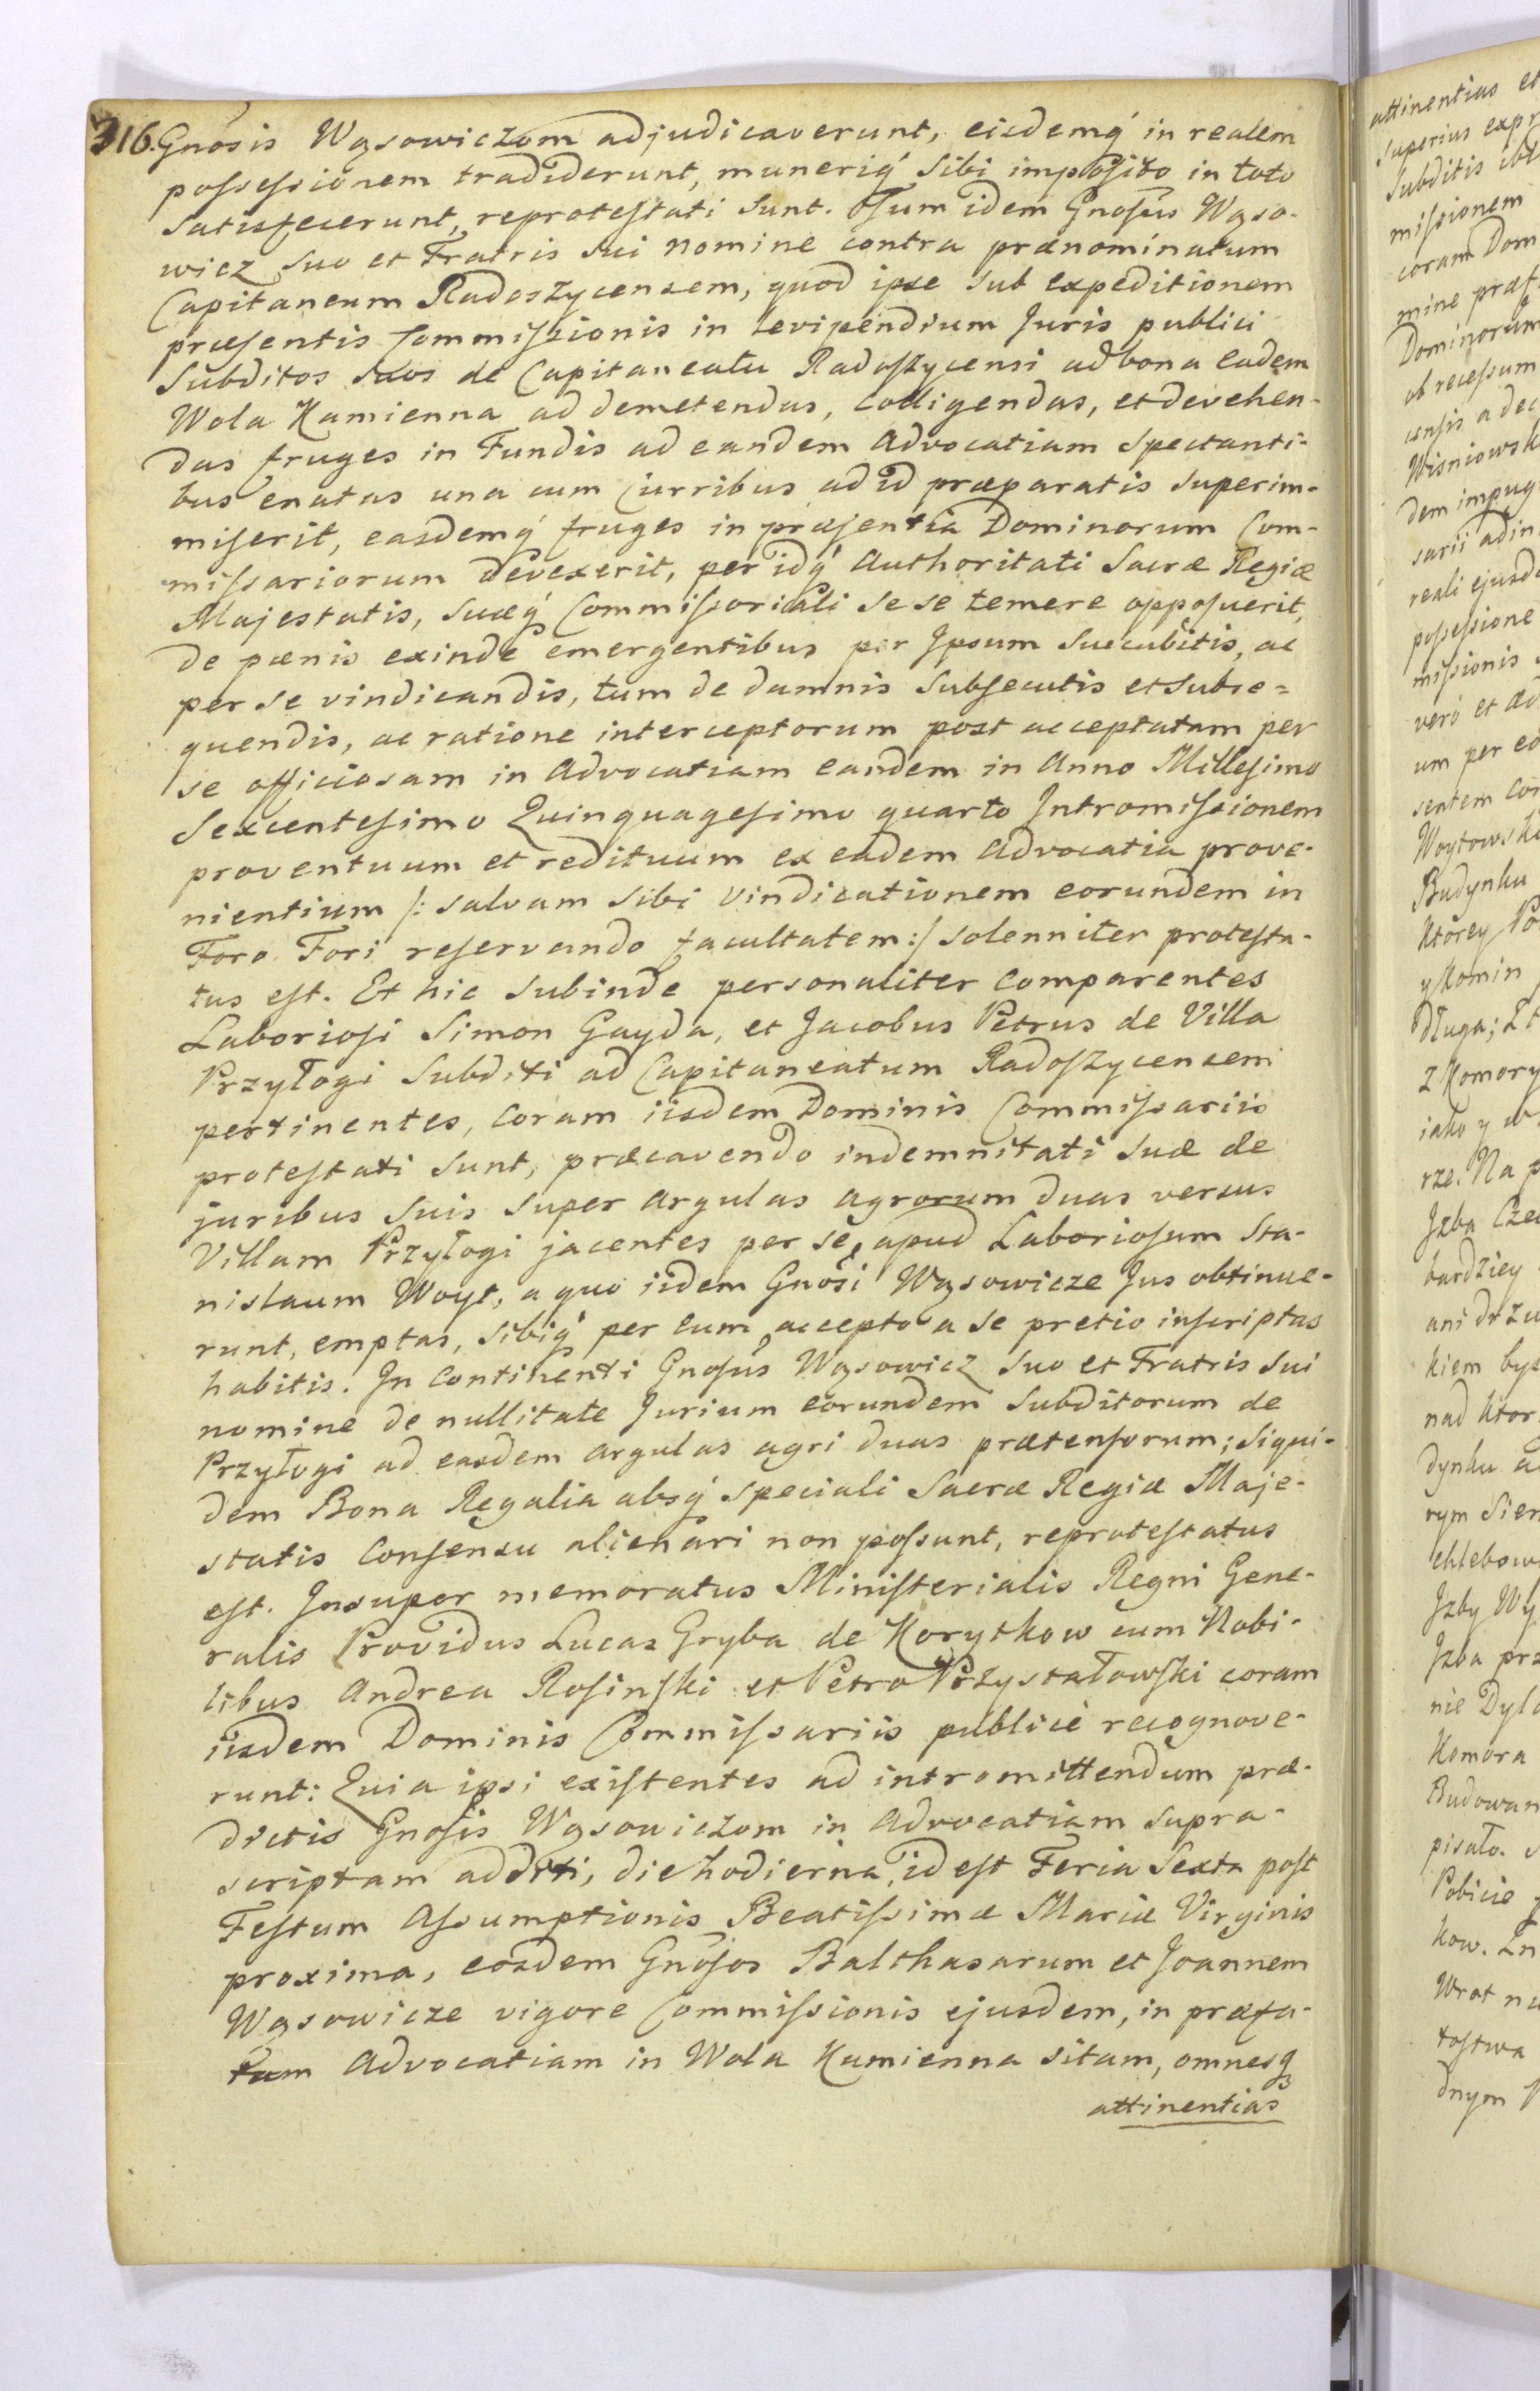 316. Gnosis Wąsowiczom adjudicaverunt, eisdemq́ in realem
possessionem tradiderunt, munerig̀ sibi imposito in toto
satisfecerunt, reprotestati sunt. Tum idem Gnosus Wąso-
wicz suo et Fratris sui nomine contra prænominatum
Capitaneum Radoszycensem, quod ipse sub expeditionem
præsentis Commissionis in levipendium Juris publici
Subditos suos de Capitaneatu Radoszycensi ad bona eadem
Wola Kamienna ad demetendas, colligendas, et devehen-
das fruges in Fundis ad eandem Advocatiam spectanti-
bus enatas una cum Curribus ad id præparatis superim-
miserit, easdemq́ fruges in præsentia Dominorum Com-
missariorum devexerit, per idq́ Authoritati Sacræ Regiæ
Majestatis, suæq́ Commissoriali se se temere opposuerit,
de pænis exinde emergentibus per Ipsum succubitis, ac
per se vindicandis, tum de damnis subsecutis et subse=
quendis, ac ratione interceptorum post acceptatam per
se officiosam in Advocatiam eandem in Anno Millesimo
Sexcentesimo Quinquagesimo quarto Intromissionem
proventuum et redituum ex eadem Advocatia prove-
nientium /: salvam sibi vindicationem eorundem in
Foro Fori reservando facultatem :/ solenniter protesta-
tus est. Et hic subinde personaliter comparentes
Laboriosi Simon Gayda, et Jacobus Petrus de Villa
Przyłogi Subditi ad Capitaneatum Radoszycensem
pertinentes, coram iisdem Dominis Commissariis
protestati sunt, præcavendo indemnitati suæ de
juribus suis super argulas agrorum duas versus
Villam Przyłogi jacentes per se, apud Laboriosum Sta-
nislaum Woyt, a quo iidem Gnosi Wąsowicze Jus obtinue-
runt, emptas, sibiq́ per eum accepto a se pretio inscriptas
habitis. In continenti Gnosus Wąsowicz suo et Fratris sui
nomine de nullitate Jurium eorundem Subditorum de
Przyłogi ad easdem argulas agri duas prætensorum; siqui-
dem Bona Regalia absq́ speciali Sacræ Regiæ Maje-
statis Consensu alienari non possunt, reprotestatus
est. Insuper memoratus Ministerialis Regni Gene-
ralis Providus Lucas Gryba de Korytkow cum Nobi-
libus Andrea Rosinski et Petro Przystałowski coram
iisdem Dominis Commissariis publicè recognove-
runt: Quia ipsi existentes ad intromittendum præ-
dictis Gnosis Wąsowiczom in Advocatiam supra-
scriptam additi, die hodierna, id est Feria Sexta post
Festum Assumptionis Beatissimæ Mariæ Virginis
proxima, eosdem Gnosos Balthasarum et Joannem
Wąsowicze vigore Commissionis ejusdem, in præfa-
tam Advocatiam in Wola Kamienna sitam, omnesq
attinentias
attinentias et
superius expr
Subditis ibi
missionem
coram Dom
mine præf
Dominorum
ob recessum
censis a dec
Wisniowsk
dem impug
sarii ad in
reali ejusd
possessione
missionis
verò et ad
um per eo
sentem Co
Woytowski
Budynku
Ktorey Po
y Komin
długa;
z Komory
iako y w
rze. Na p
Izba Cze
bardziey
ani drzw
kiem by
nad ktor
dynku a
rym sien
chlebow
Izby Wy
Izba prz
nie Dyl
Komora
Budowan
pisało.
Pobicie
kow. In
Wrot n
tostwa
dnym